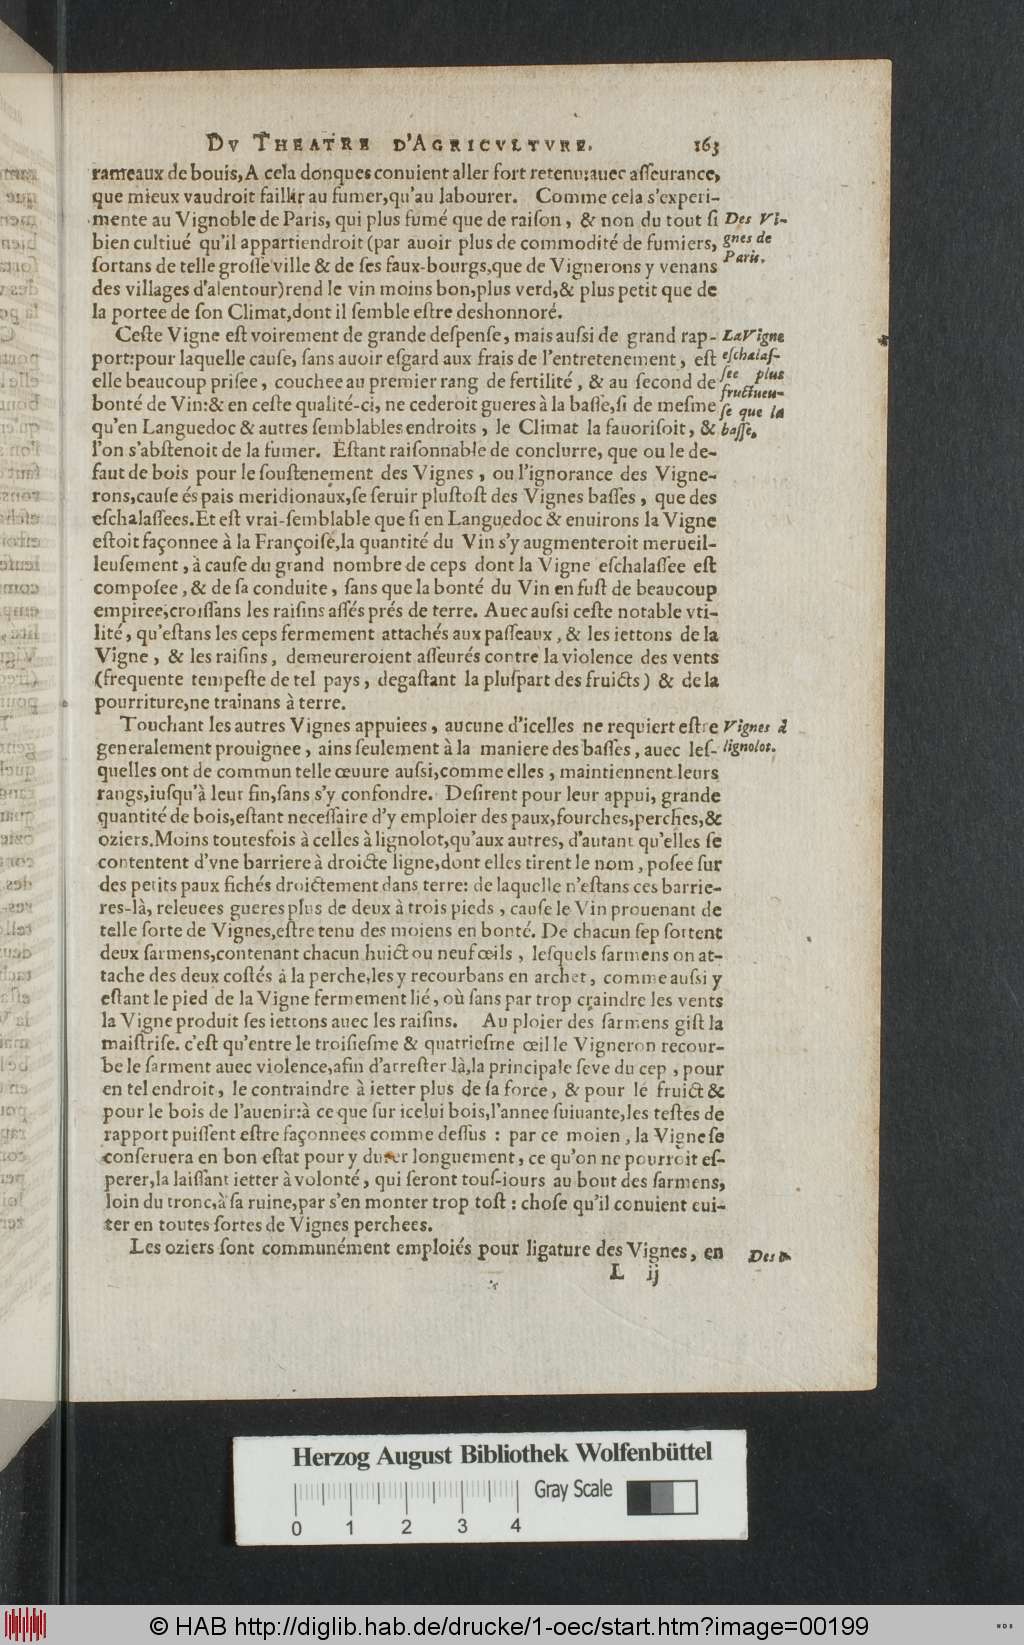 DV THEATRE D'AGRICVLTVRE. 163
rameaux de bouis, A cela donques conuient aller fort retenu: auec aſſeurance,
que mieux vaudroit faillir au fumer, qu'au labourer. Comme cela s'experi-
mente au Vignoble de Paris, qui plus fumé que de raiſon, & non du tout ſi
bien cultiué qu'il appartiendroit (par auoir plus de commodité de fumiers,
ſortans de telle groſſe ville & de ſes faux-bourgs, que de Vignerons y venans
des villages d'alentour) rend le vin moins bon, plus verd, & plus petit que de
la portee de ſon Climat, dont il ſemble eſtre deshonnoré.
Des Vi-
gnes de
Paris.
Ceſte Vigne eſt voirement de grande deſpenſe, mais auſsi de grand rap-
port: pour laquelle cauſe, ſans auoir eſgard aux frais de l'entretenement, eſt
elle beaucoup priſee, couchee au premier rang de fertilité, & au ſecond de
bonté de Vin: & en ceſte qualité-ci, ne cederoit gueres à la baſſe, ſi de meſme
qu'en Languedoc & autres ſemblables endroits, le Climat la fauoriſoit, &
l'on s'abſtenoit de la fumer. Eſtant raiſonnable de conclurre, que ou le de-
faut de bois pour le souſtenement des Vignes, ou l'ignorance des Vigne-
rons, cauſe és païs meridionaux, ſe ſeruir pluſtoſt des Vignes baſſes, que des
eſchalaſſees. Et eſt vrai-ſemblable que ſi en Languedoc & enuirons la Vigne
eſtoit façonnee à la Françoiſe, la quantité du Vin s'y augmenteroit merueil-
leuſement, à cauſe du grand nombre de ceps dont la Vigne eſchalaſſee eſt
compoſee, & de ſa conduite, ſans que la bonté du Vin en fuſt de beaucoup
empiree, croiſſans les raiſins aſſés prés de terre. Auec auſsi ceſte notable vti-
lité, qu'eſtans les ceps fermement attachés aux paſſeaux, & les iettons de la
Vigne, & les raiſins, demeureroient aſſeurés contre la violence des vents
(frequente tempeſte de tel pays, degaſtant la pluſpart des fruicts) & de la
pourriture, ne traînans à terre.
La Vigne
eſchalaſ-
ſee plus
fructueu-
ſe que la
baſſe.
Touchant les autres Vignes appuiees, aucune d'icelles ne requiert eſtre
generalement prouignee, ains ſeulement à la maniere des baſſes, auec leſ-
quelles ont de commun telle œuure auſsi, comme elles, maintiennent leurs
rangs, iuſqu'à leur fin, ſans s'y confondre. Deſirent pour leur appui, grande
quantité de bois, eſtant neceſſaire d'y emploier des paux, fourches, perches, &
oziers. Moins toutesfois à celles à lignolot, qu'aux autres, d'autant qu'elles ſe
contentent d'vne barriere à droicte ligne, dont elles tirent le nom, poſee ſur
des petits paux fichés droictement dans terre: de laquelle n'eſtans ces barrie-
res-là, releuees gueres plus de deux à trois pieds, cauſe le Vin prouenant de
telle ſorte de Vignes, eſtre tenu des moiens en bonté. De chacun ſep ſortent
deux ſarmens, contenant chacun huict ou neuf œils, leſquels ſarmens on at-
tache des deux coſtés à la perche, les y recourbans en archet, comme auſsi y
eſtant le pied de la Vigne fermement lié, où ſans par trop craindre les vents
la Vigne produit ſes iettons auec les raiſins. Au ploier des ſarmens giſt la
maiſtriſe. c'eſt qu'entre le troiſieſme & quatrieſme œil le Vigneron recour-
be le ſarment auec violence, afin d'arreſter là, la principale ſeve du cep, pour
en tel endroit, le contraindre à ietter plus de ſa force, & pour le fruict &
pour le bois de l'auenir: à ce que ſur icelui bois, l'annee ſuiuante, les teſtes de
rapport puiſſent eſtre façonnees comme deſſus: par ce moien, la Vigne ſe
conſeruera en bon eſtat pour y durer longuement, ce qu'on ne pourroit eſ-
perer, la laiſſant ietter à volonté, qui ſeront touſ-iours au bout des ſarmens,
loin du tronc, à ſa ruine, par s'en monter trop toſt: choſe qu'il conuient eui-
ter en toutes ſortes de Vignes perchees.
Vignes à
lignolot.
Les oziers ſont communément emploiés pour ligature des Vignes, en
L ij
Herzog August Bibliothek Wolfenbüttel
Gray Scale
0 1 2 3 4
© HAB http://diglib.hab.de/drucke/1-oec/start.htm?image=00199